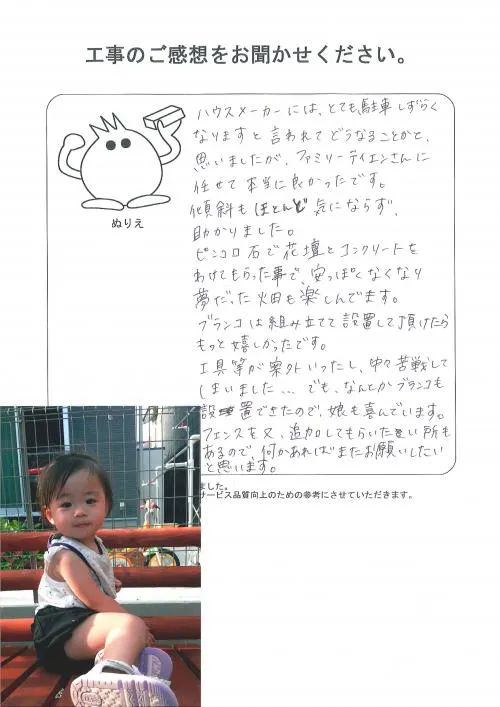 工事のご感想をお聞かせください。
ぬりえ
ハウスメーカーには、とても駐車しずらく
なりますと言われてどうなることかと、
思いましたが、ファミリーティエンさんに
任せて本当に良かったです。
傾斜もほとんど気にならず、
助かりました。
ピンコロ石で花壇とコンクリートを
わけてもらった事で、安っぽくなくなり
夢だった畑も楽しんでます。
ブランコは組み立てて設置して頂けたら
もっと嬉しかったです。
工具等が案外いったし、中々苦戦して
しまいました... でも、なんとかブランコも
設置できたので、娘も喜んでいます。
フェンスを又、追加してもらいたい所も
あるので、何かあればまたお願いしたい
と思います。
ました。
サービス品質向上のための参考にさせていただきます。